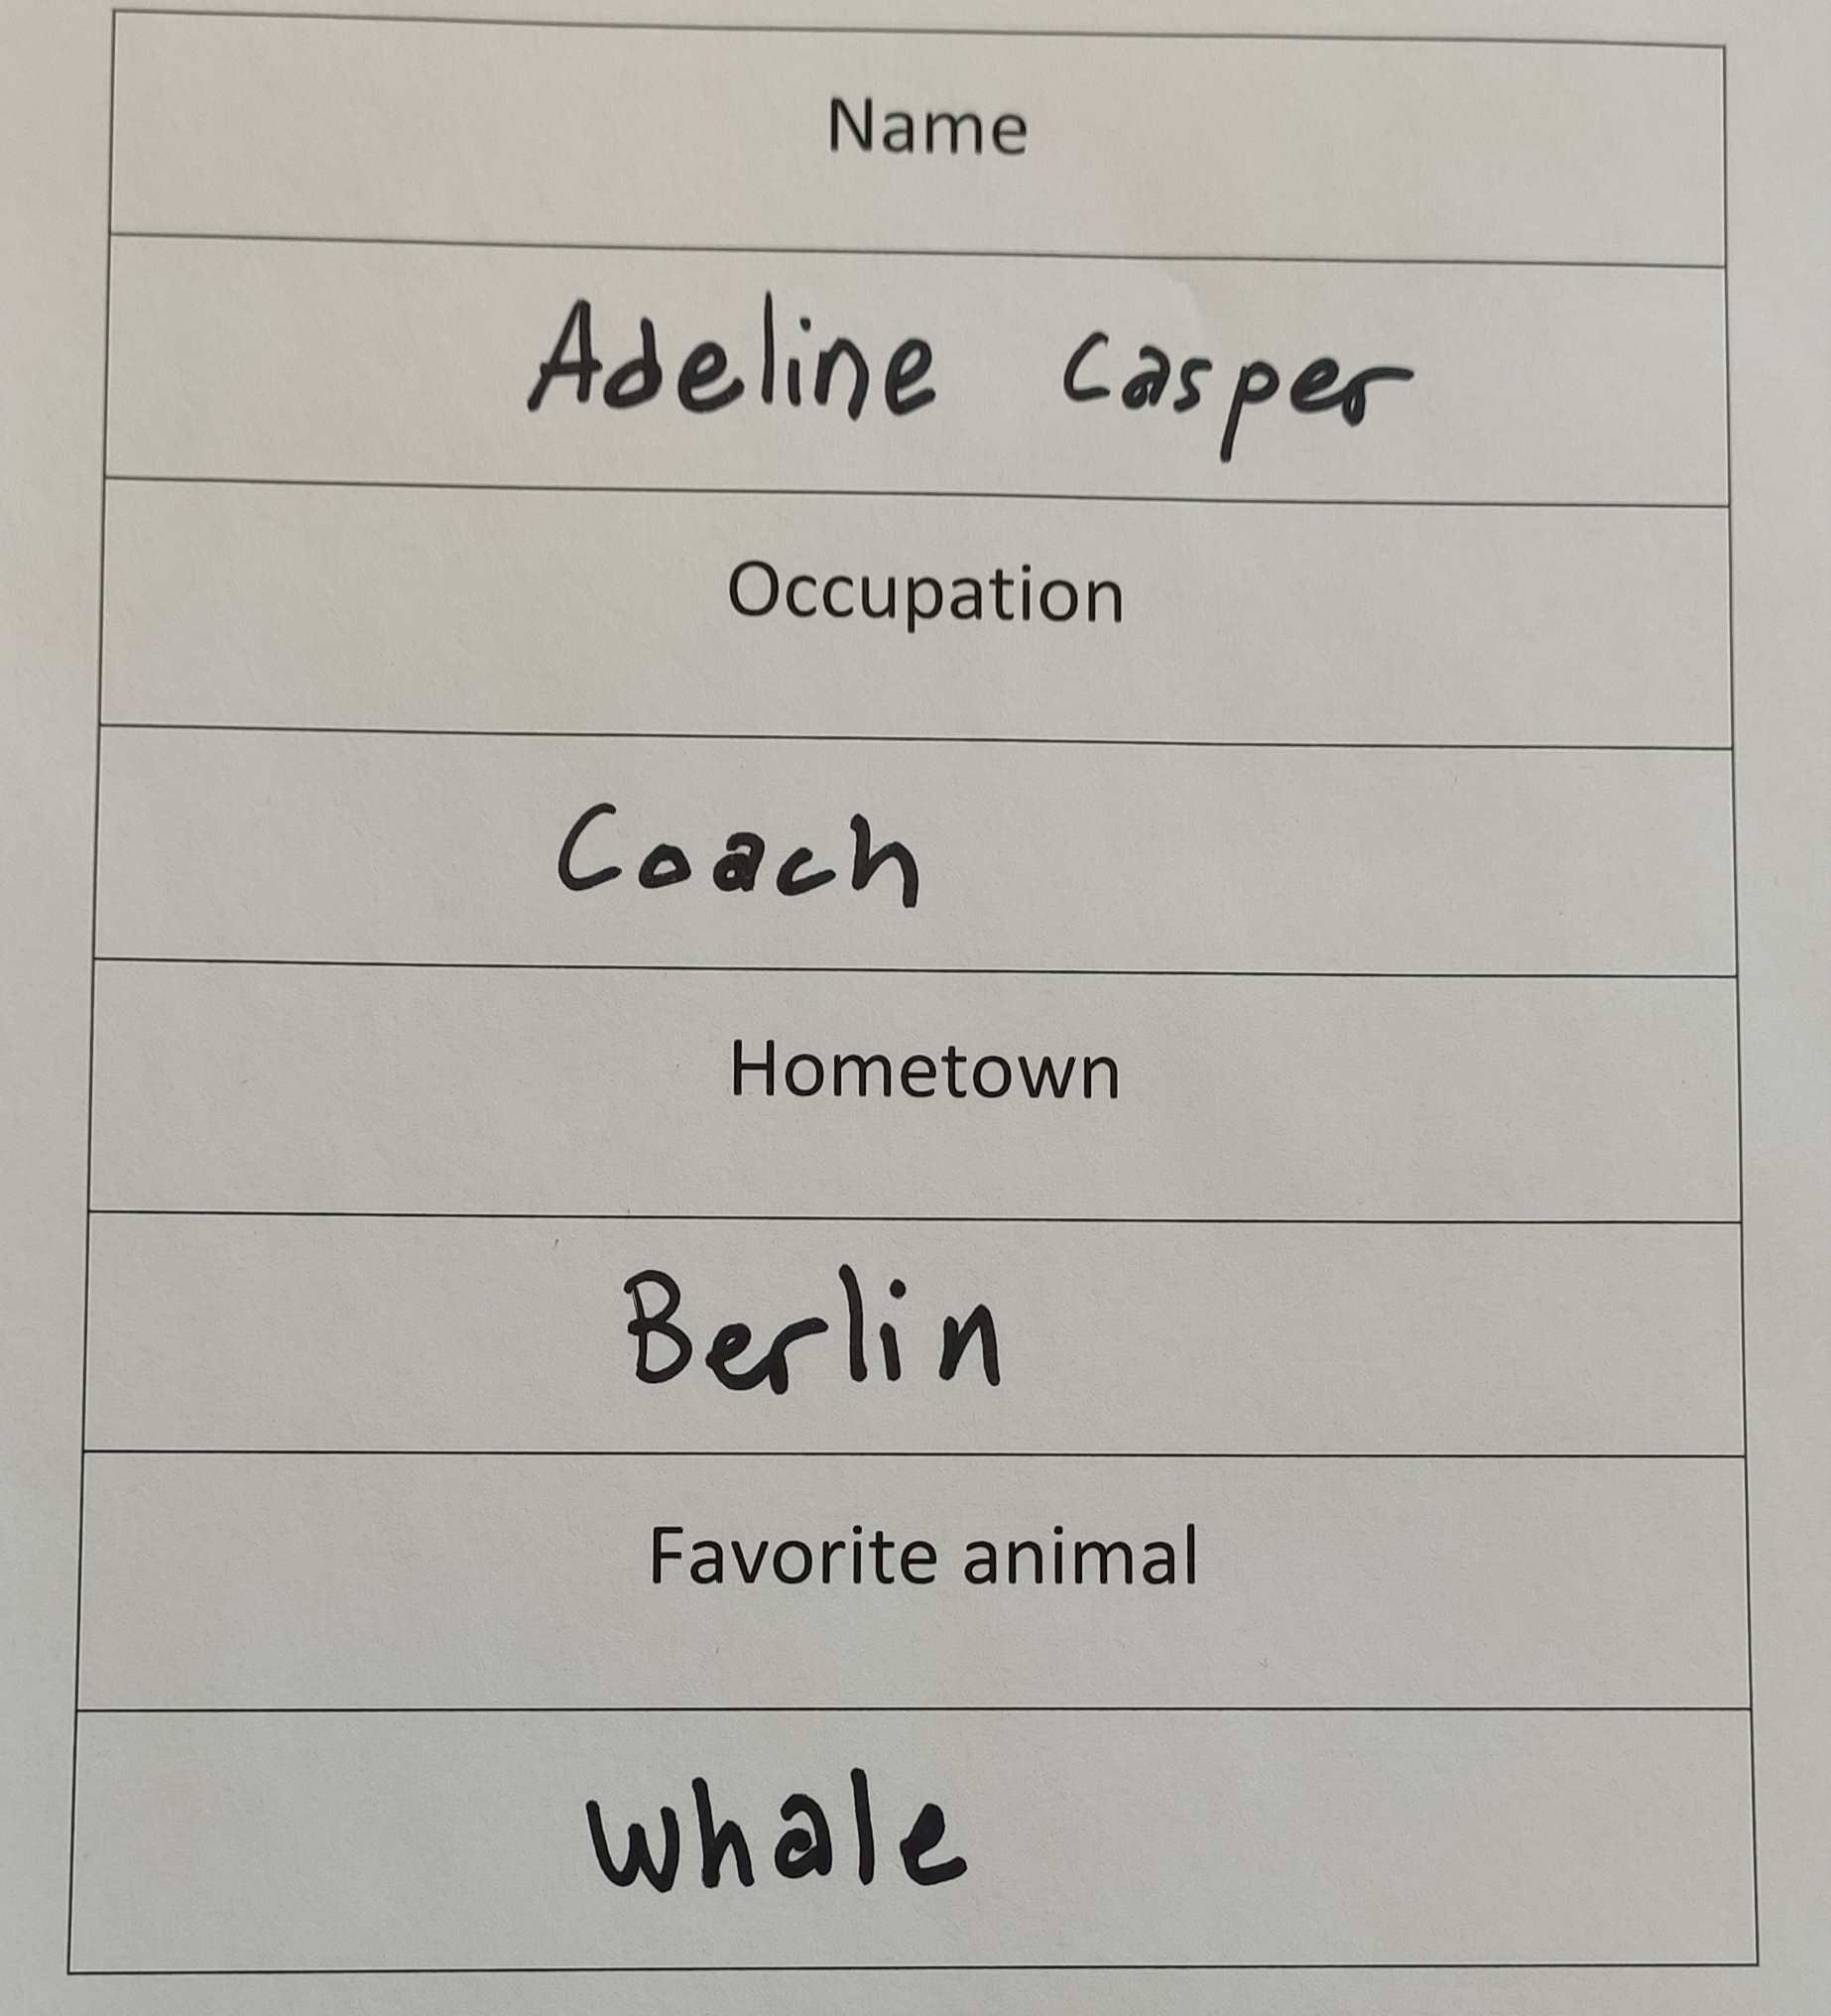 Name
Adeline Casper
Occupation
Coach
Hometown
Berlin
Favorite animal
whale